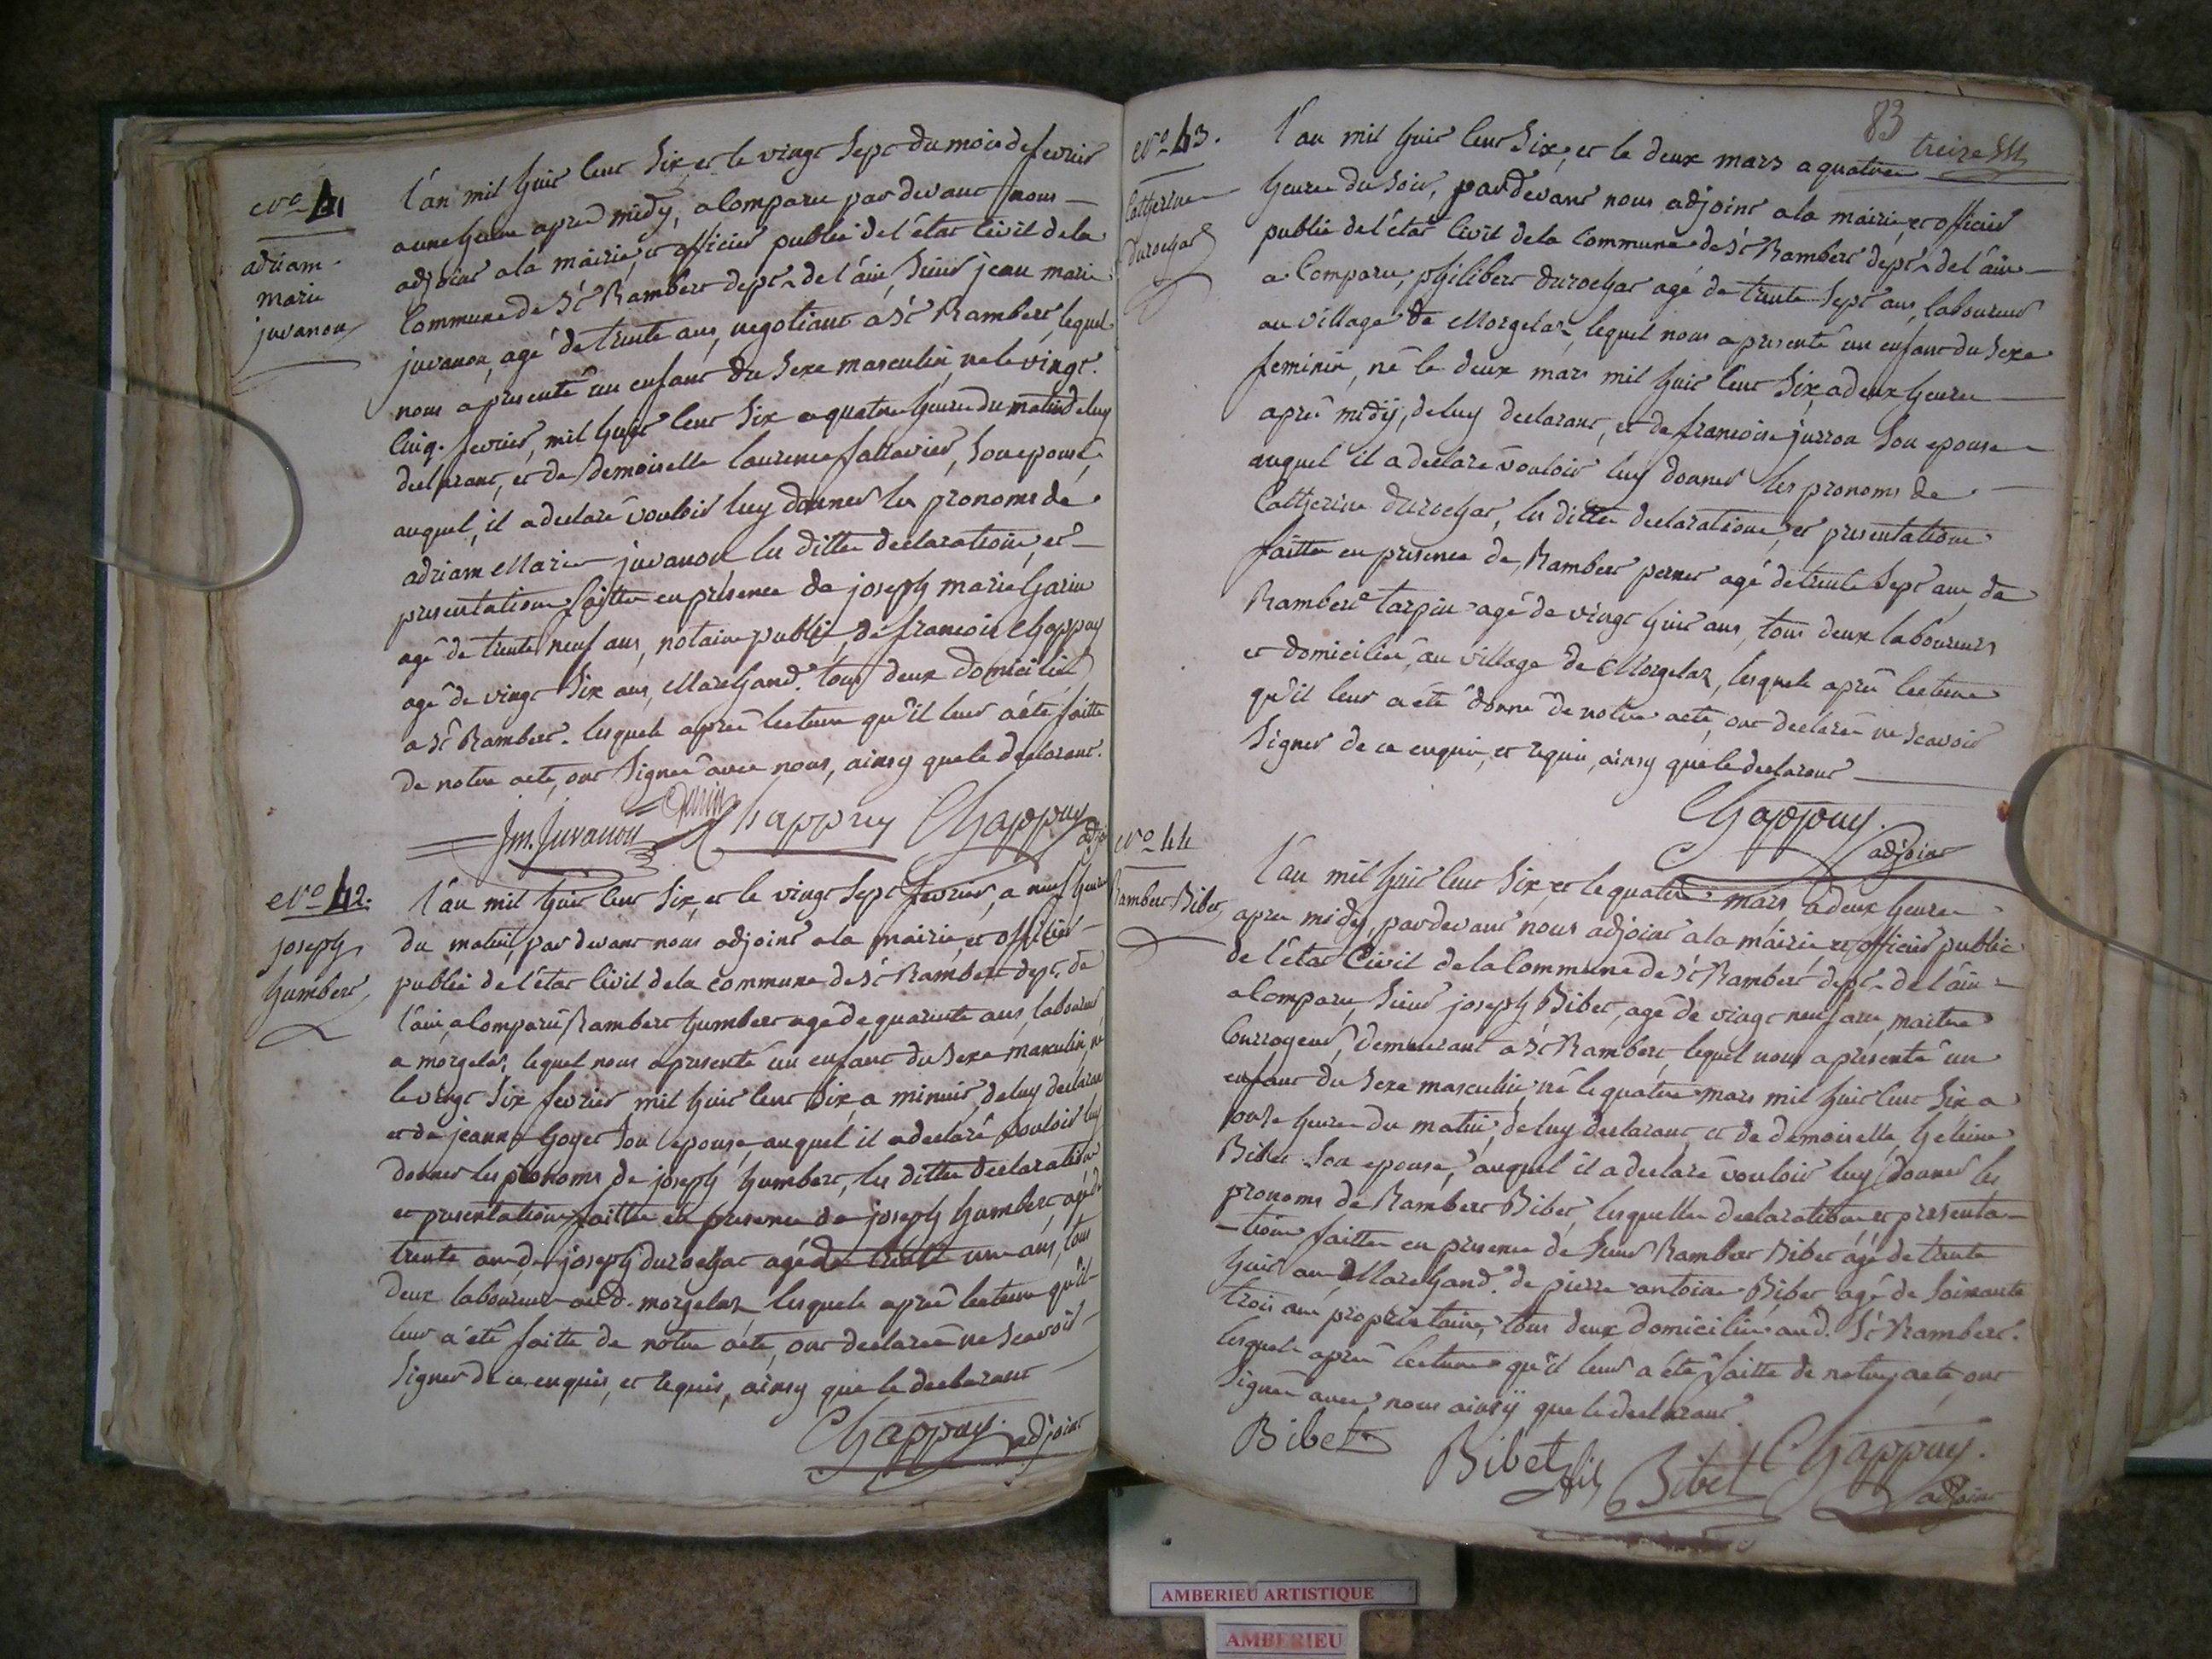 N.o 41
adriam
marie
juvanon
L'an mil huit cent six, et le vingt sept du mois de fevrier
a une heure apres midy, a comparu par devant nous
adjoint a la mairie, et officier public de l'état civil de la
commune de St Rambert dept. de l'ain, Sieur jean marie
juvanon, agé de trente ans, negotiant a St Rambert, lequel
nous a presenté un enfant du sexe masculin, né le vingt
cinq. fevrier, mil huit cent six a quatre heure du matin de luy
declarant, et de demoiselle laurence fattavier, son epouse,
auquel, il a declaré vouloir luy donner les pronoms de
adriam Marie juvanon les dittes declarations, et
presentations faittes en présence de joseph marie Garin
agé de trente neuf ans, notaire public, de francois Chappuy
agé de vingt six ans, Marchand. tous deux domiciliés
a St Rambert. lesquels aprés lecture qu'il leur a été faitte
de notre acte, ont signés avec nous, ainsy que le declarant.
Jm. Juvanon Garin Chappuy Chappuy adjoint
N.o 42.
joseph
humbert
L'an mil huit cent six, et le vingt sept fevrier, a neuf heures
du matin, par devant nous adjoint a la mairie, et officier
public de l'état civil de la commune de St Rambert dept. de
l'ain, a comparu Rambert humbert agé de quarante ans, laboureur
a morgelas, lequel nous a presenté un enfant du sexe masculin, né
le vingt six fevrier mil huit cent six, a minuit, de luy declarant
et de jeanne Goyet son epouse, auquel il a declaré vouloir luy
donner les pronoms de joseph humbert, les dittes declarations
et presentations faittes en presence de joseph humbert agé de
trente ans, de joseph durochat agé de trente un ans, tous
deux laboureurs aud. morgelas lesquels aprés lecture qu'il
leur a été faitte de notre acte, ont declarés ne scavoir
signer de ce enquis, et requis, ainsy que le declarant
Chappuy adjoint
83
treize
N.o 43.
Catherine
Durochat
L'an mil huit cent six, et le deux mars a quatre
heures du soir, pardevant nous adjoint a la mairie, et officier
public de l'état civil de la commune de St Rambert dept. de l'ain
a comparu, philibert durochat agé de trente sept ans, laboureur
au village de Morgelas, lequel nous a presenté un enfant du sexe
feminin, né le deux mars mil huit cent six, a deux heures
aprés midy, de luy declarant, et de francoise juron son epouse
auquel il a declaré vouloir luy donner les pronoms de
Catherine durochat, les dittes declarations, et presentations
faittes en presence de, Rambert perret agé de trente sept ans, de
Rambert tarpin agé de vingt huit ans, tous deux laboureurs
et domiciliés, au village de Morgelas, lesquels aprés lecture
qu'il leur a été donné de notre acte, ont declarés ne scavoir
signer de ce enquis, et requis, ainsy que le declarant
Chappuy.
adjoint
N.o 44
Rambert Bibet
L'an mil huit cent six, et le quatre mars, a deux heures
apres midy, pardevant nous adjoint a la mairie et officier public
de l'état Civil de la Commune de St Rambert dept. de l'ain
a comparu, Sieur joseph Bibet, agé de vingt neuf ans, maitre
Courroyeur, demeurant a St Rambert, lequel nous a presenté un
enfant du sexe masculin, né le quatre mars mil huit cent six a
onze heures du matin, de luy declarant, et de demoiselle helleine
Bibet son epouse, auquel il a declaré vouloir luy donner les
pronoms de Rambert Bibet, lesquelles declarations et presenta-
-tions faittes en presence de Sieur Rambert Bibet agé de trente
huit ans, Marchand. de pierre antoine Bibet agé de soixante
trois ans proprietaire, tous deux domiciliés aud. St Rambert.
lesquels aprés lecture qu'il leur a été faitte de notre acte ont
signés avec nous ainsy que le declarant.
Bibet Bibet fils Bibet Chappuy.
adjoint
AMBERIEU ARTISTIQUE
AMBERIEU